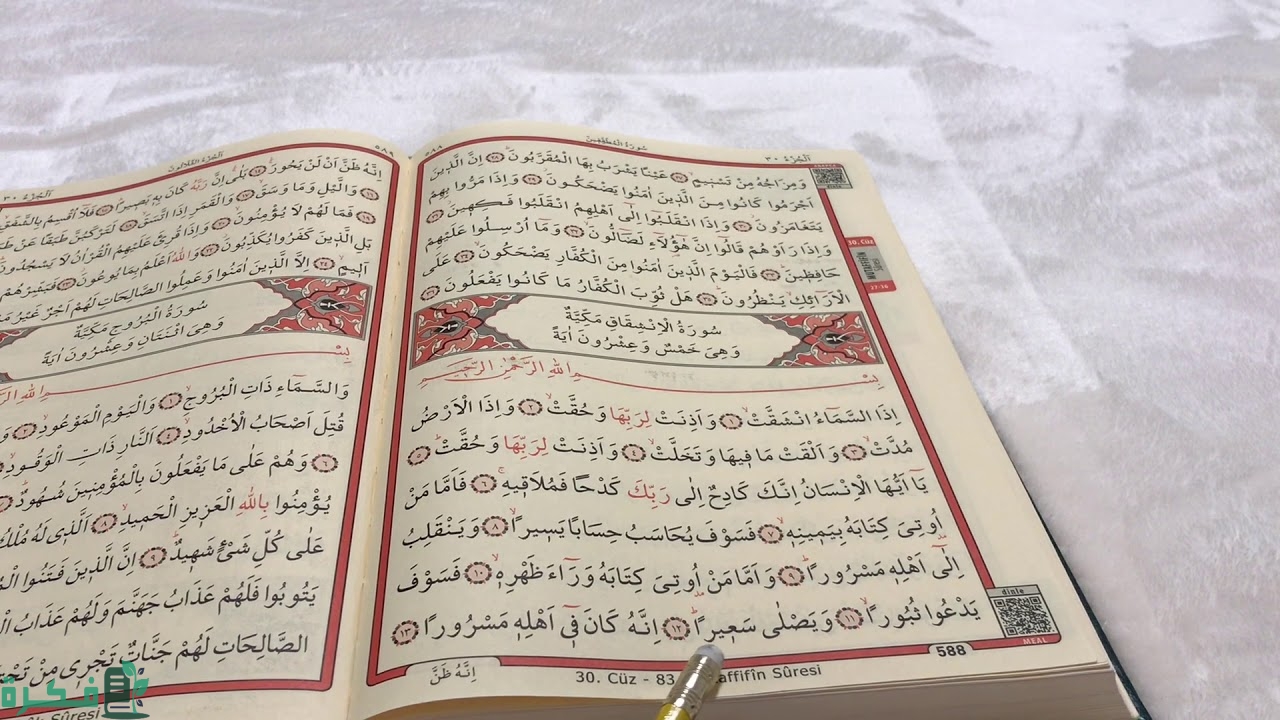 اَلْجُزْءُ ٣٠
سُورَةُ الْمُطَفِّفِينَ
٥٨٨
وَمِزَاجُهُ مِنْ تَسْنِيمٍۙ ﴿٢٧﴾ عَيْنًا يَشْرَبُ بِهَا الْمُقَرَّبُونَۜ ﴿٢٨﴾ اِنَّ الَّذِينَ
اَجْرَمُوا كَانُوا مِنَ الَّذِينَ اٰمَنُوا يَضْحَكُونَۘ ﴿٢٩﴾ وَاِذَا مَرُّوا بِهِمْ
يَتَغَامَزُونَۘ ﴿٣٠﴾ وَاِذَا انْقَلَبُٓوا اِلٰٓى اَهْلِهِمُ انْقَلَبُوا فَكِهِينَۘ ﴿٣١﴾
وَاِذَا رَاَوْهُمْ قَالُٓوا اِنَّ هٰٓؤُ۬لَٓاءِ لَضَٓالُّونَۙ ﴿٣٢﴾ وَمَٓا اُرْسِلُوا عَلَيْهِمْ
حَافِظِينَۜ ﴿٣٣﴾ فَالْيَوْمَ الَّذِينَ اٰمَنُوا مِنَ الْكُفَّارِ يَضْحَكُونَۙ ﴿٣٤﴾ عَلَى
الْاَرَٓائِكِ يَنْظُرُونَۜ ﴿٣٥﴾ هَلْ ثُوِّبَ الْكُفَّارُ مَا كَانُوا يَفْعَلُونَ ﴿٣٦﴾
سُورَةُ الْاِنْشِقَاقِ مَكِّيَّةٌ
وَهِيَ خَمْسٌ وَعِشْرُونَ اٰيَةً
بِسْمِ اللّٰهِ الرَّحْمٰنِ الرَّحِيمِ
اِذَا السَّمَٓاءُ انْشَقَّتْۙ ﴿١﴾ وَاَذِنَتْ لِرَبِّهَا وَحُقَّتْۙ ﴿٢﴾ وَاِذَا الْاَرْضُ
مُدَّتْۙ ﴿٣﴾ وَاَلْقَتْ مَا فِيهَا وَتَخَلَّتْۙ ﴿٤﴾ وَاَذِنَتْ لِرَبِّهَا وَحُقَّتْۜ ﴿٥﴾
يَٓا اَيُّهَا الْاِنْسَانُ اِنَّكَ كَادِحٌ اِلٰى رَبِّكَ كَدْحًا فَمُلَاقِيهِۚ ﴿٦﴾ فَاَمَّا مَنْ
اُو۫تِيَ كِتَابَهُ بِيَمِينِهِۙ ﴿٧﴾ فَسَوْفَ يُحَاسَبُ حِسَابًا يَسِيرًاۙ ﴿٨﴾ وَيَنْقَلِبُ
اِلٰٓى اَهْلِهِ مَسْرُورًاۜ ﴿٩﴾ وَاَمَّا مَنْ اُو۫تِيَ كِتَابَهُ وَرَٓاءَ ظَهْرِهِۙ ﴿١٠﴾ فَسَوْفَ
يَدْعُوا ثُبُورًاۙ ﴿١١﴾ وَيَصْلٰى سَعِيرًاۜ ﴿١٢﴾ اِنَّهُ كَانَ فِٓي اَهْلِهِ مَسْرُورًاۜ ﴿١٣﴾
اِنَّهُ ظَنَّ
30. Cüz - 83
affifîn Sûresi
588
30. Cüz
27-36
dinle
MEAL
اَلْجُزْءُ الثَّلَاثُونَ
اَلْجُزْءُ ٣٠
٥٨٩
اِنَّهُ ظَنَّ اَنْ لَنْ يَحُورَۚۛ ﴿١٤﴾ بَلٰىۚۛ اِنَّ رَبَّهُ كَانَ بِهِ بَصِيرًاۜ ﴿١٥﴾ فَلَٓا اُقْسِمُ بِالشَّفَقِۙ
﴿١٦﴾ وَالَّيْلِ وَمَا وَسَقَۙ ﴿١٧﴾ وَالْقَمَرِ اِذَا اتَّسَقَۙ ﴿١٨﴾ لَتَرْكَبُنَّ طَبَقًا عَنْ
﴿١٩﴾ فَمَا لَهُمْ لَا يُؤْمِنُونَۙ ﴿٢٠﴾ وَاِذَا قُرِئَ عَلَيْهِمُ الْقُرْاٰنُ لَا يَسْجُدُونَ
بَلِ الَّذِينَ كَفَرُوا يُكَذِّبُونَۘ ﴿٢٢﴾ وَاللّٰهُ اَعْلَمُ بِمَا يُوعُونَۘ ﴿٢٣﴾ فَبَشِّرْهُمْ
اَلِيمٍۙ ﴿٢٤﴾ اِلَّا الَّذِينَ اٰمَنُوا وَعَمِلُوا الصَّالِحَاتِ لَهُمْ اَجْرٌ غَيْرُ
سُورَةُ الْبُرُوجِ مَكِّيَّةٌ
وَهِيَ اثْنَتَانِ وَعِشْرُونَ اٰيَةً
بِسْمِ اللّٰهِ
وَالسَّمَٓاءِ ذَاتِ الْبُرُوجِۙ ﴿١﴾ وَالْيَوْمِ الْمَوْعُودِۙ ﴿٢﴾
قُتِلَ اَصْحَابُ الْاُخْدُودِۙ ﴿٤﴾ اَلنَّارِ ذَاتِ الْوَقُودِۙ
﴿٦﴾ وَهُمْ عَلٰى مَا يَفْعَلُونَ بِالْمُؤْمِنِينَ شُهُودٌۜ
يُؤْمِنُوا بِاللّٰهِ الْعَزِيزِ الْحَمِيدِۙ ﴿٨﴾ اَلَّذِي لَهُ مُلْكُ
عَلٰى كُلِّ شَيْءٍ شَهِيدٌۜ ﴿٩﴾ اِنَّ الَّذِينَ فَتَنُوا
يَتُوبُوا فَلَهُمْ عَذَابُ جَهَنَّمَ وَلَهُمْ عَذَابُ
الصَّالِحَاتِ لَهُمْ جَنَّاتٌ تَجْرِي مِنْ
Sûresi
فكرة